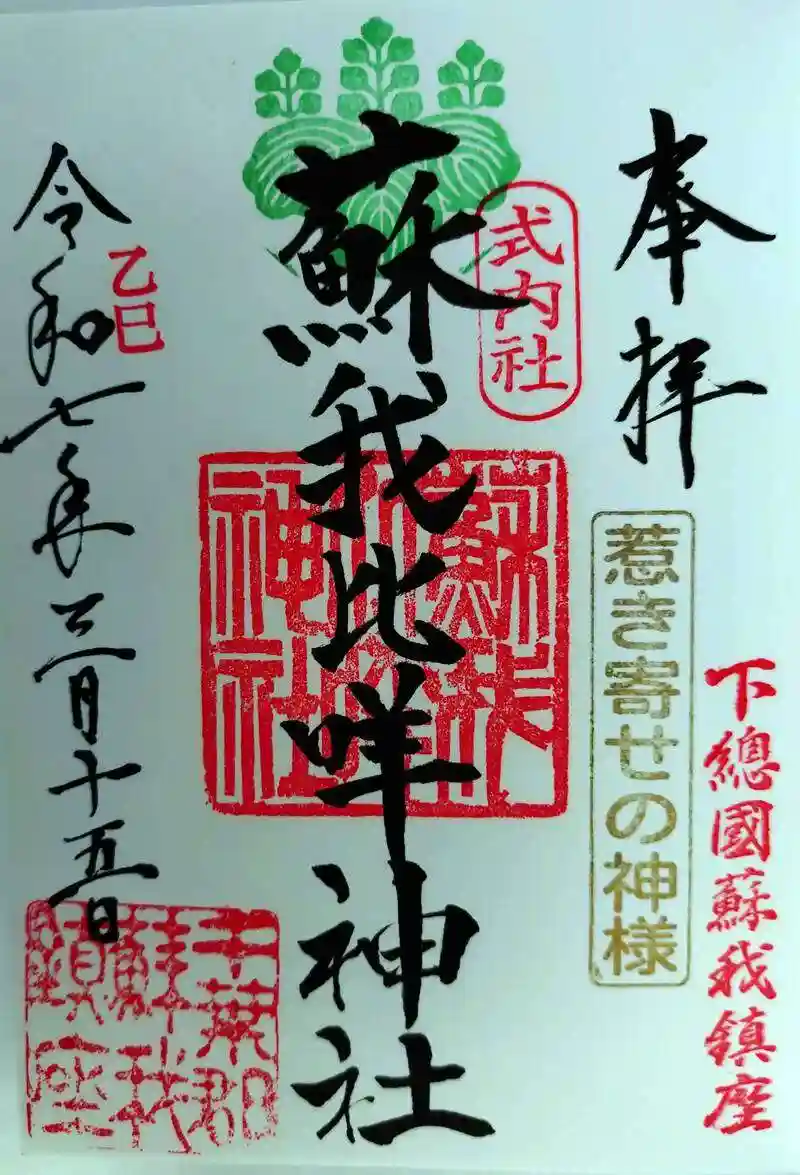 奉拝
惹き寄せの神様
下總國蘇我鎮座
式内社
蘇我比咩神社
蘇我比咩神社
令和七年三月十五日
乙巳
千葉郡
蘇我
鎮座